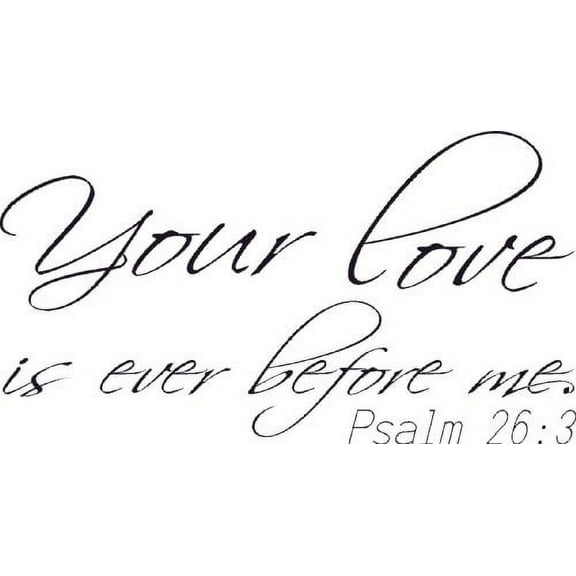 Your love
is ever before me.
Psalm 26:3